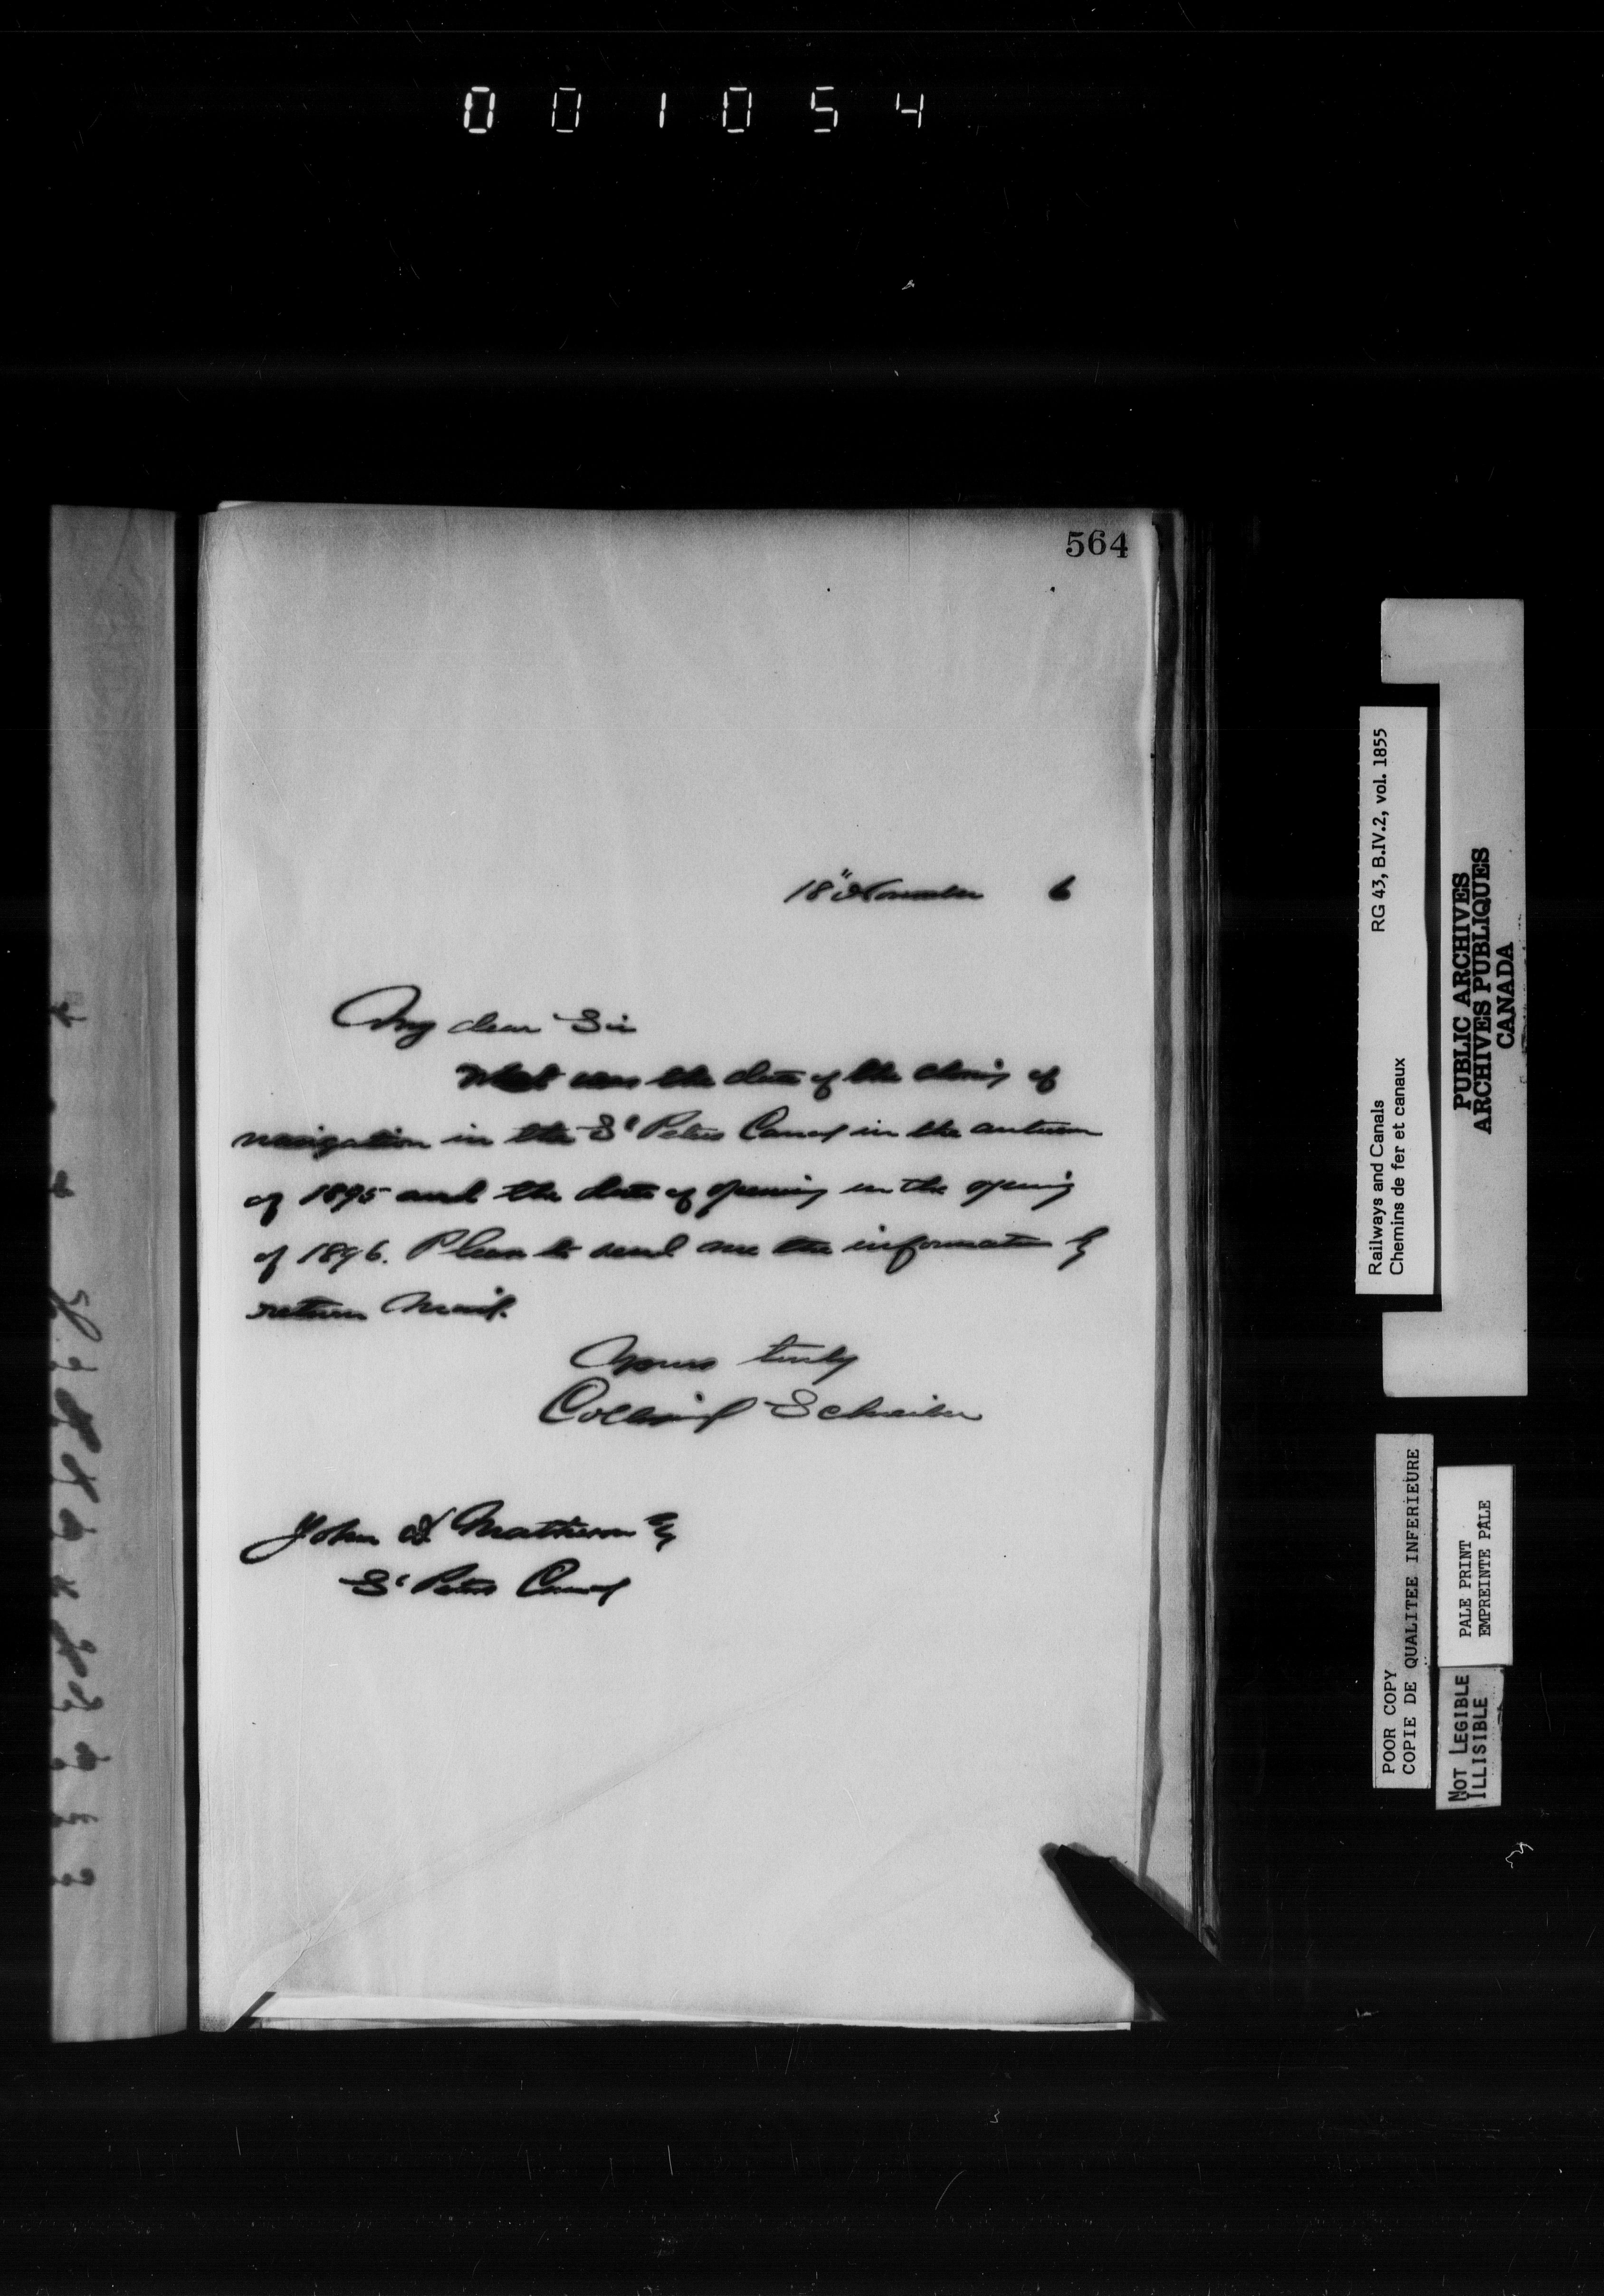 001054
564
18" November 6
My dear Sir
What was the date of the closing of
navigation in the St Peters Canal in the autumn
of 1895 and the date of opening in the spring
of 1896. Please to send me the information by
return mail.
Yours truly
Collingwood Schreiber
John Matheson Esq
St Peters Canal
Railways and Canals RG 43, B.IV.2, vol. 1855
Chemins de fer et canaux
PUBLIC ARCHIVES
ARCHIVES PUBLIQUES
CANADA
POOR COPY
COPIE DE QUALITEE INFERIEURE
PALE PRINT
EMPREINTE PÂLE
NOT LEGIBLE
ILLISIBLE